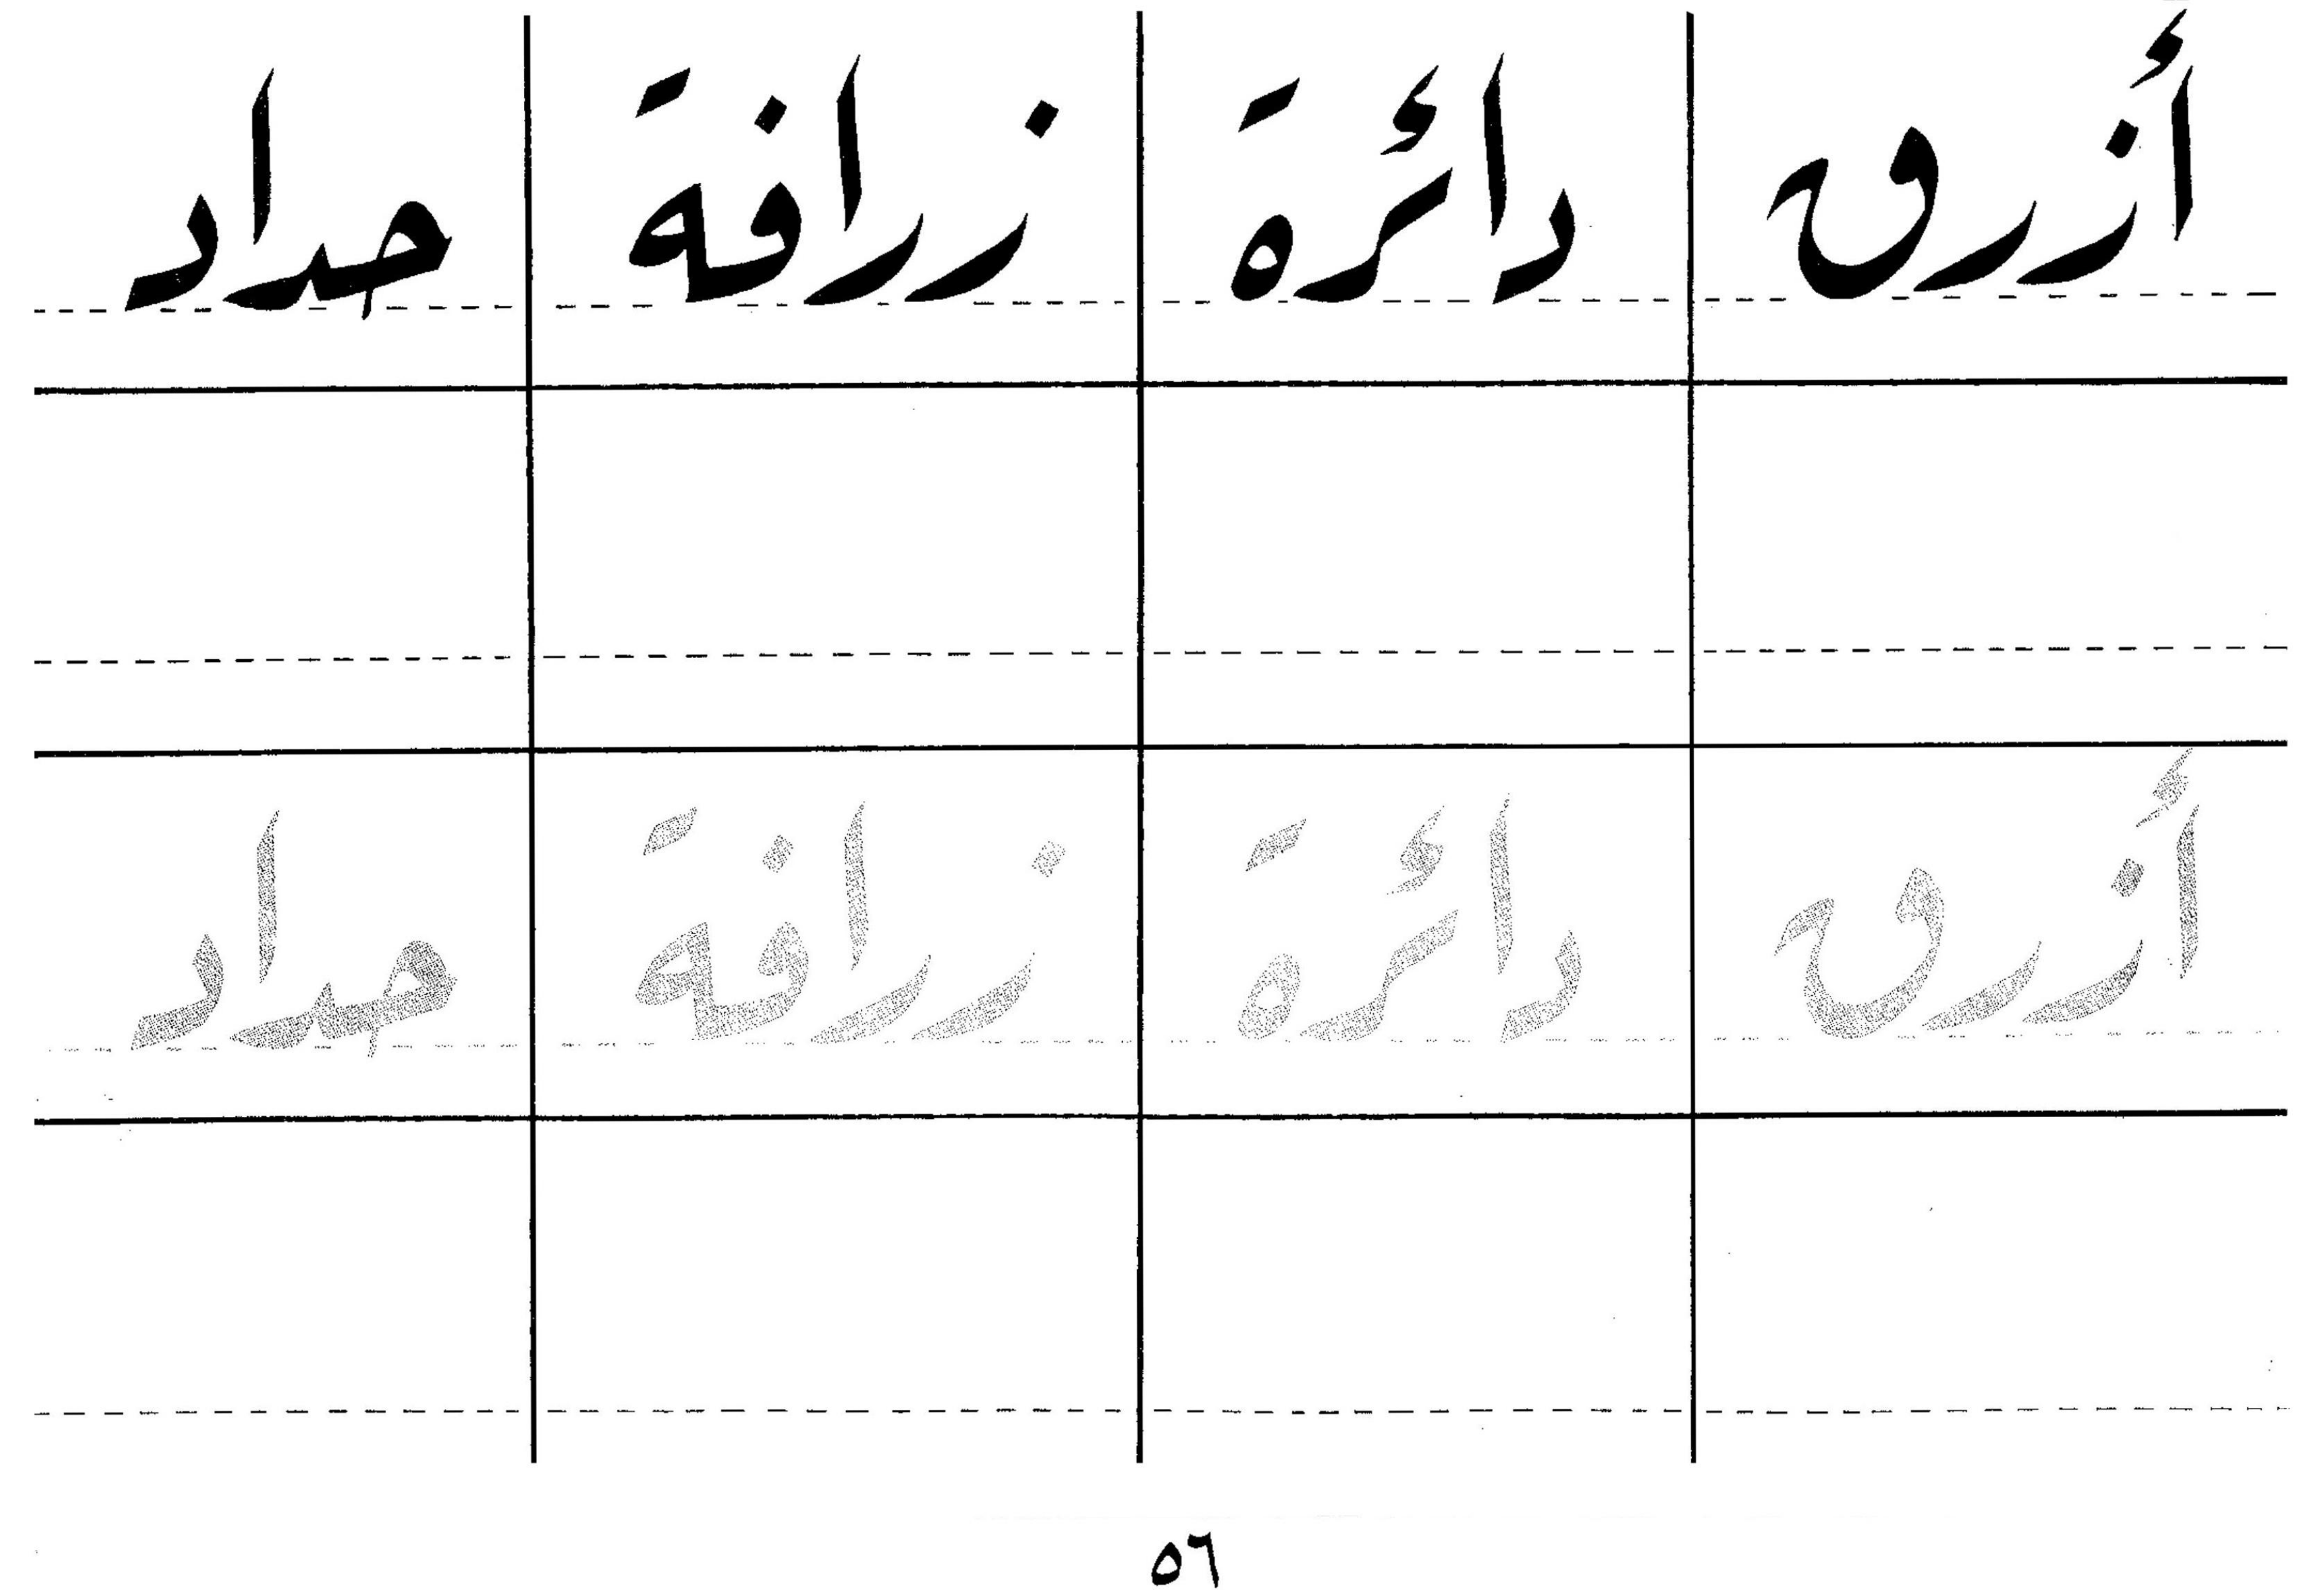 أزرق دائرة زرافة حداد
أزرق دائرة زرافة حداد
٥٦